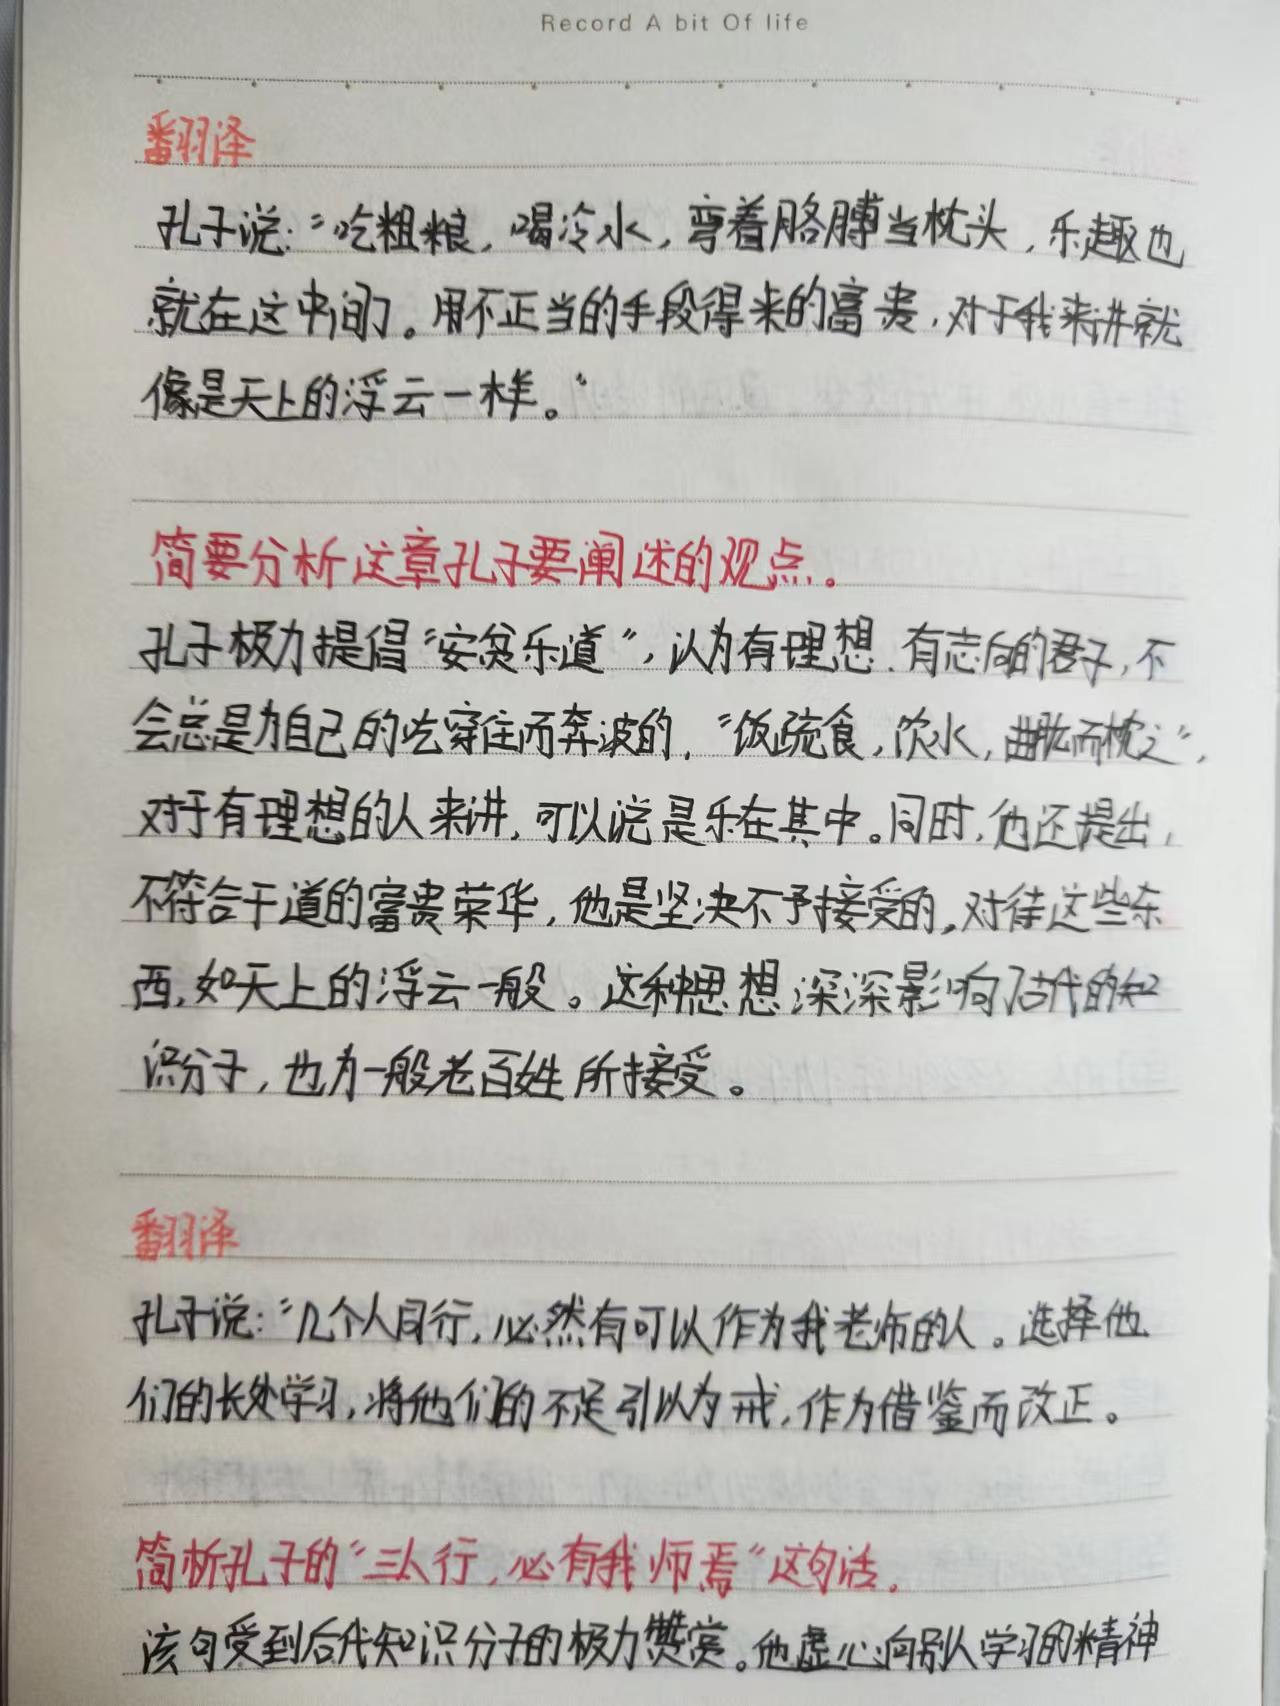 Record A bit Of life
翻译
孔子说：“吃粗粮，喝冷水，弯着胳膊当枕头，乐趣也
就在这中间了。用不正当的手段得来的富贵，对于我来讲就
像是天上的浮云一样。”
简要分析这章孔子要阐述的观点。
孔子极力提倡“安贫乐道”，认为有理想、有志向的君子，不
会总是为自己的吃穿住而奔波的，“饭疏食，饮水，曲肱而枕之”，
对于有理想的人来讲，可以说是乐在其中。同时，他还提出，
不符合于道的富贵荣华，他是坚决不予接受的，对待这些东
西，如天上的浮云一般。这种思想深深影响了古代的知
识分子，也为一般老百姓所接受。
翻译
孔子说：“几个人同行，必然有可以作为我老师的人。选择他
们的长处学习，将他们的不足引以为戒，作为借鉴而改正。
简析孔子的“三人行，必有我师焉”这句话。
该句受到后代知识分子的极力赞赏。他虚心向别人学习的精神